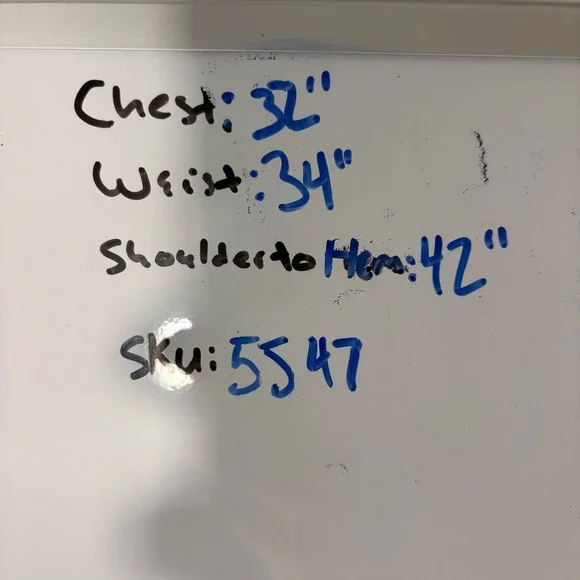 Chest: 32"
Waist: 34"
Shoulder to Hem: 42"
SKU: 5547